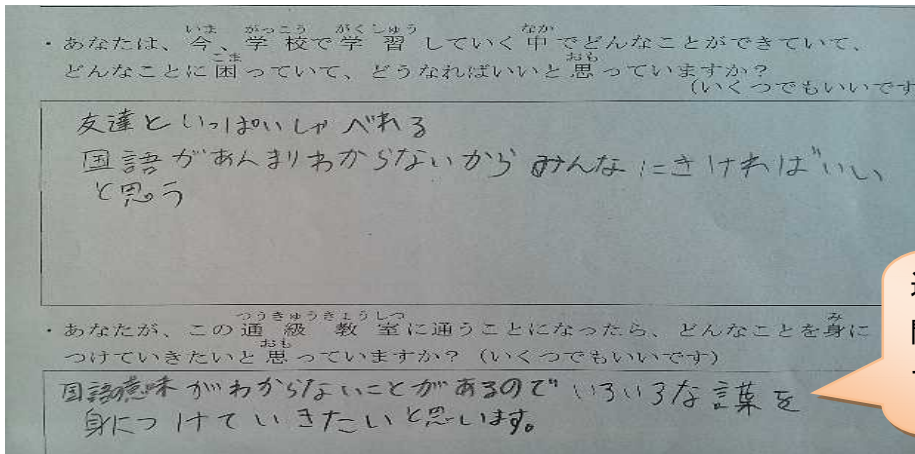 ・あなたは、今、学校で学習していく中でどんなことができていて、
どんなことに困っていて、どうなればいいと思っていますか？
(いくつでもいいです
友達といっぱいしゃべれる
国語があんまりわからないから みんなにきければいい
と思う
・あなたが、この通級教室に通うことになったら、どんなことを身に
つけていきたいと思っていますか？（いくつでもいいです）
国語意味がわからないことがあるので いろいろな言葉を
身につけていきたいと思います。